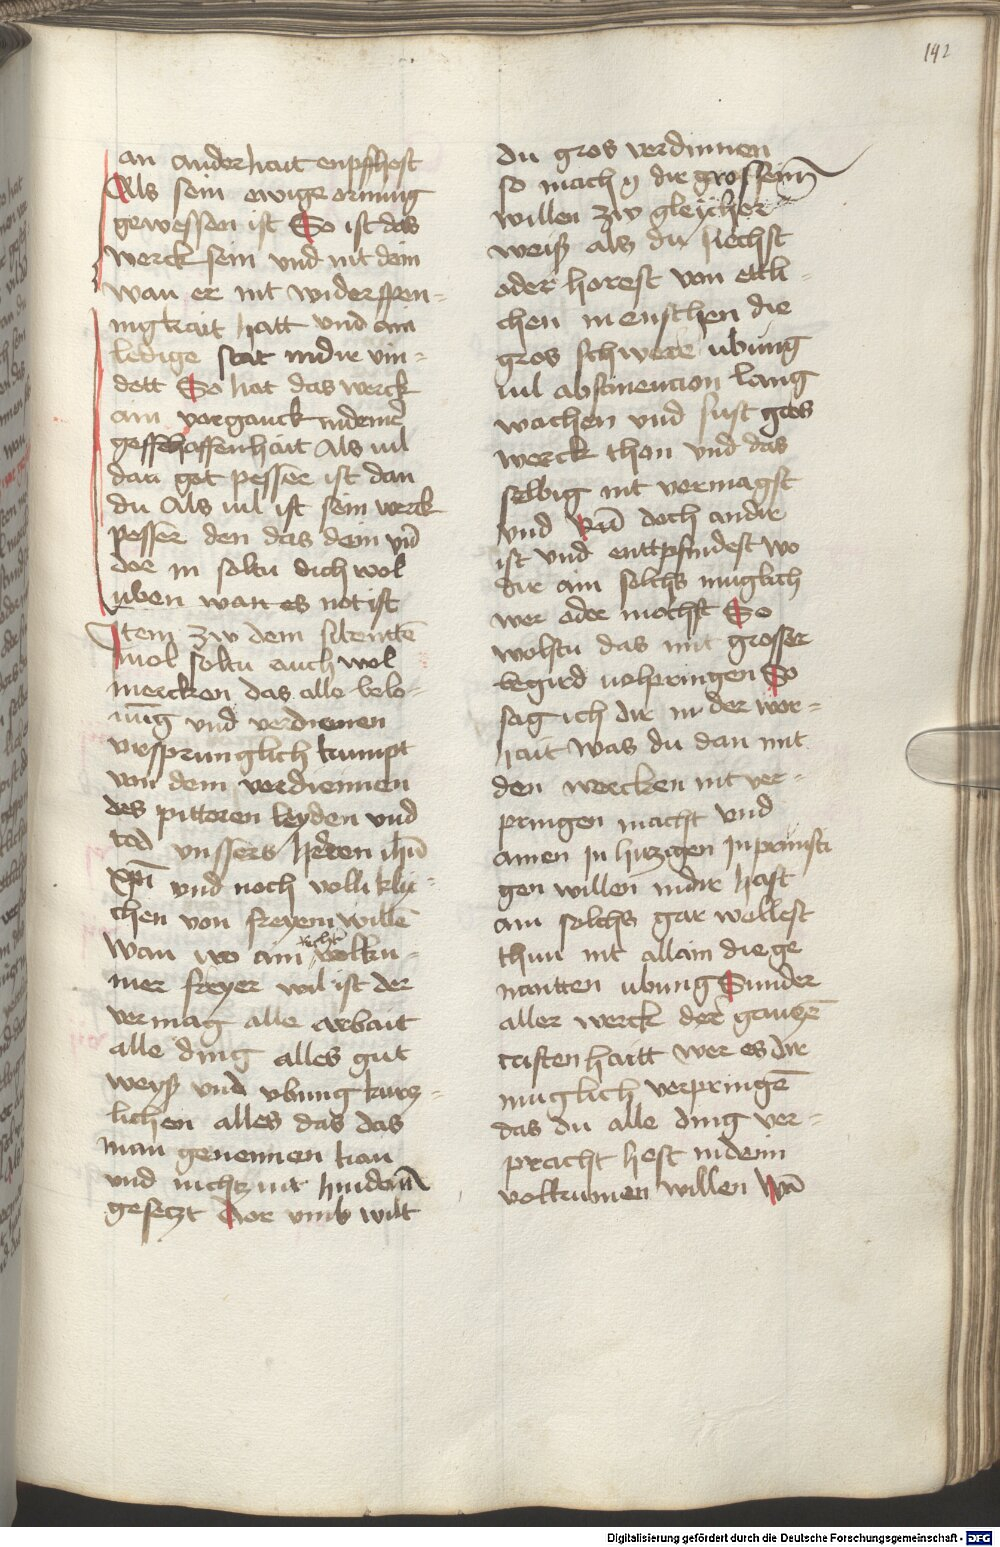 192
an ander hait enpfhest
Als sein ewige ornung
gewessen ist So ist das
werck sein und nit dein
wan er nit widerspen-
nigkait hatt und ain
ledige stat indir vin-
dett So hat das werck
ain vorganck indeiner
gesschaffenhait Als uil
dan got pesser ist dan
du Als uil ist sein werck
pesser den das dein vñ
dor in soltu dich wol
uben wan es not ist
Item zw dem sibentē
mol soltu auch wol
mercken das alle belo-
nūg und verdienen
vrsprunglich kumpt
von dem verdiennen
des pitteren leyden und
tod vnssers heren ihū
xpī und noch volli kly-
chen von freyem willē
wan wo ain recht volku-
mer freyer wil ist der
vermag alle arbait
alle ding alles gut
weyß und vbung kurcz-
lichen alles das das
man genennen kan
und nichcz nit hindann
gesetzt Dor umb wilt
du gros verdinnen
so mach dir grossenn
willen zw gleycher
weiß als du siechst
oder horest von ettli-
chen menschen die
gros schwere ubung
uil abstinencion lang
wachen und sust gros
werck thon und das
selbig nit vermagst
und doch andir
ist und enttpfindest wo
dir ain solchs muglich
wer oder mochst So
wolstu das mit grosser
begird uolpringen So
sag ich dir in der wor-
hait was du dan mit
den wercken nit ver-
pringen macht und
ainen in hiczigen inprinsti
gen willen indir hast
ain solchs gar wollest
thun nit allain die ge
nantten ubung Sunder
aller werck der ganczē
cristenhaitt wer es dir
muglich verpringē
das du alle ding ver-
pracht hest in deim
volkumen willen Wā
Digitalisierung gefördert durch die Deutsche Forschungsgemeinschaft - DFG